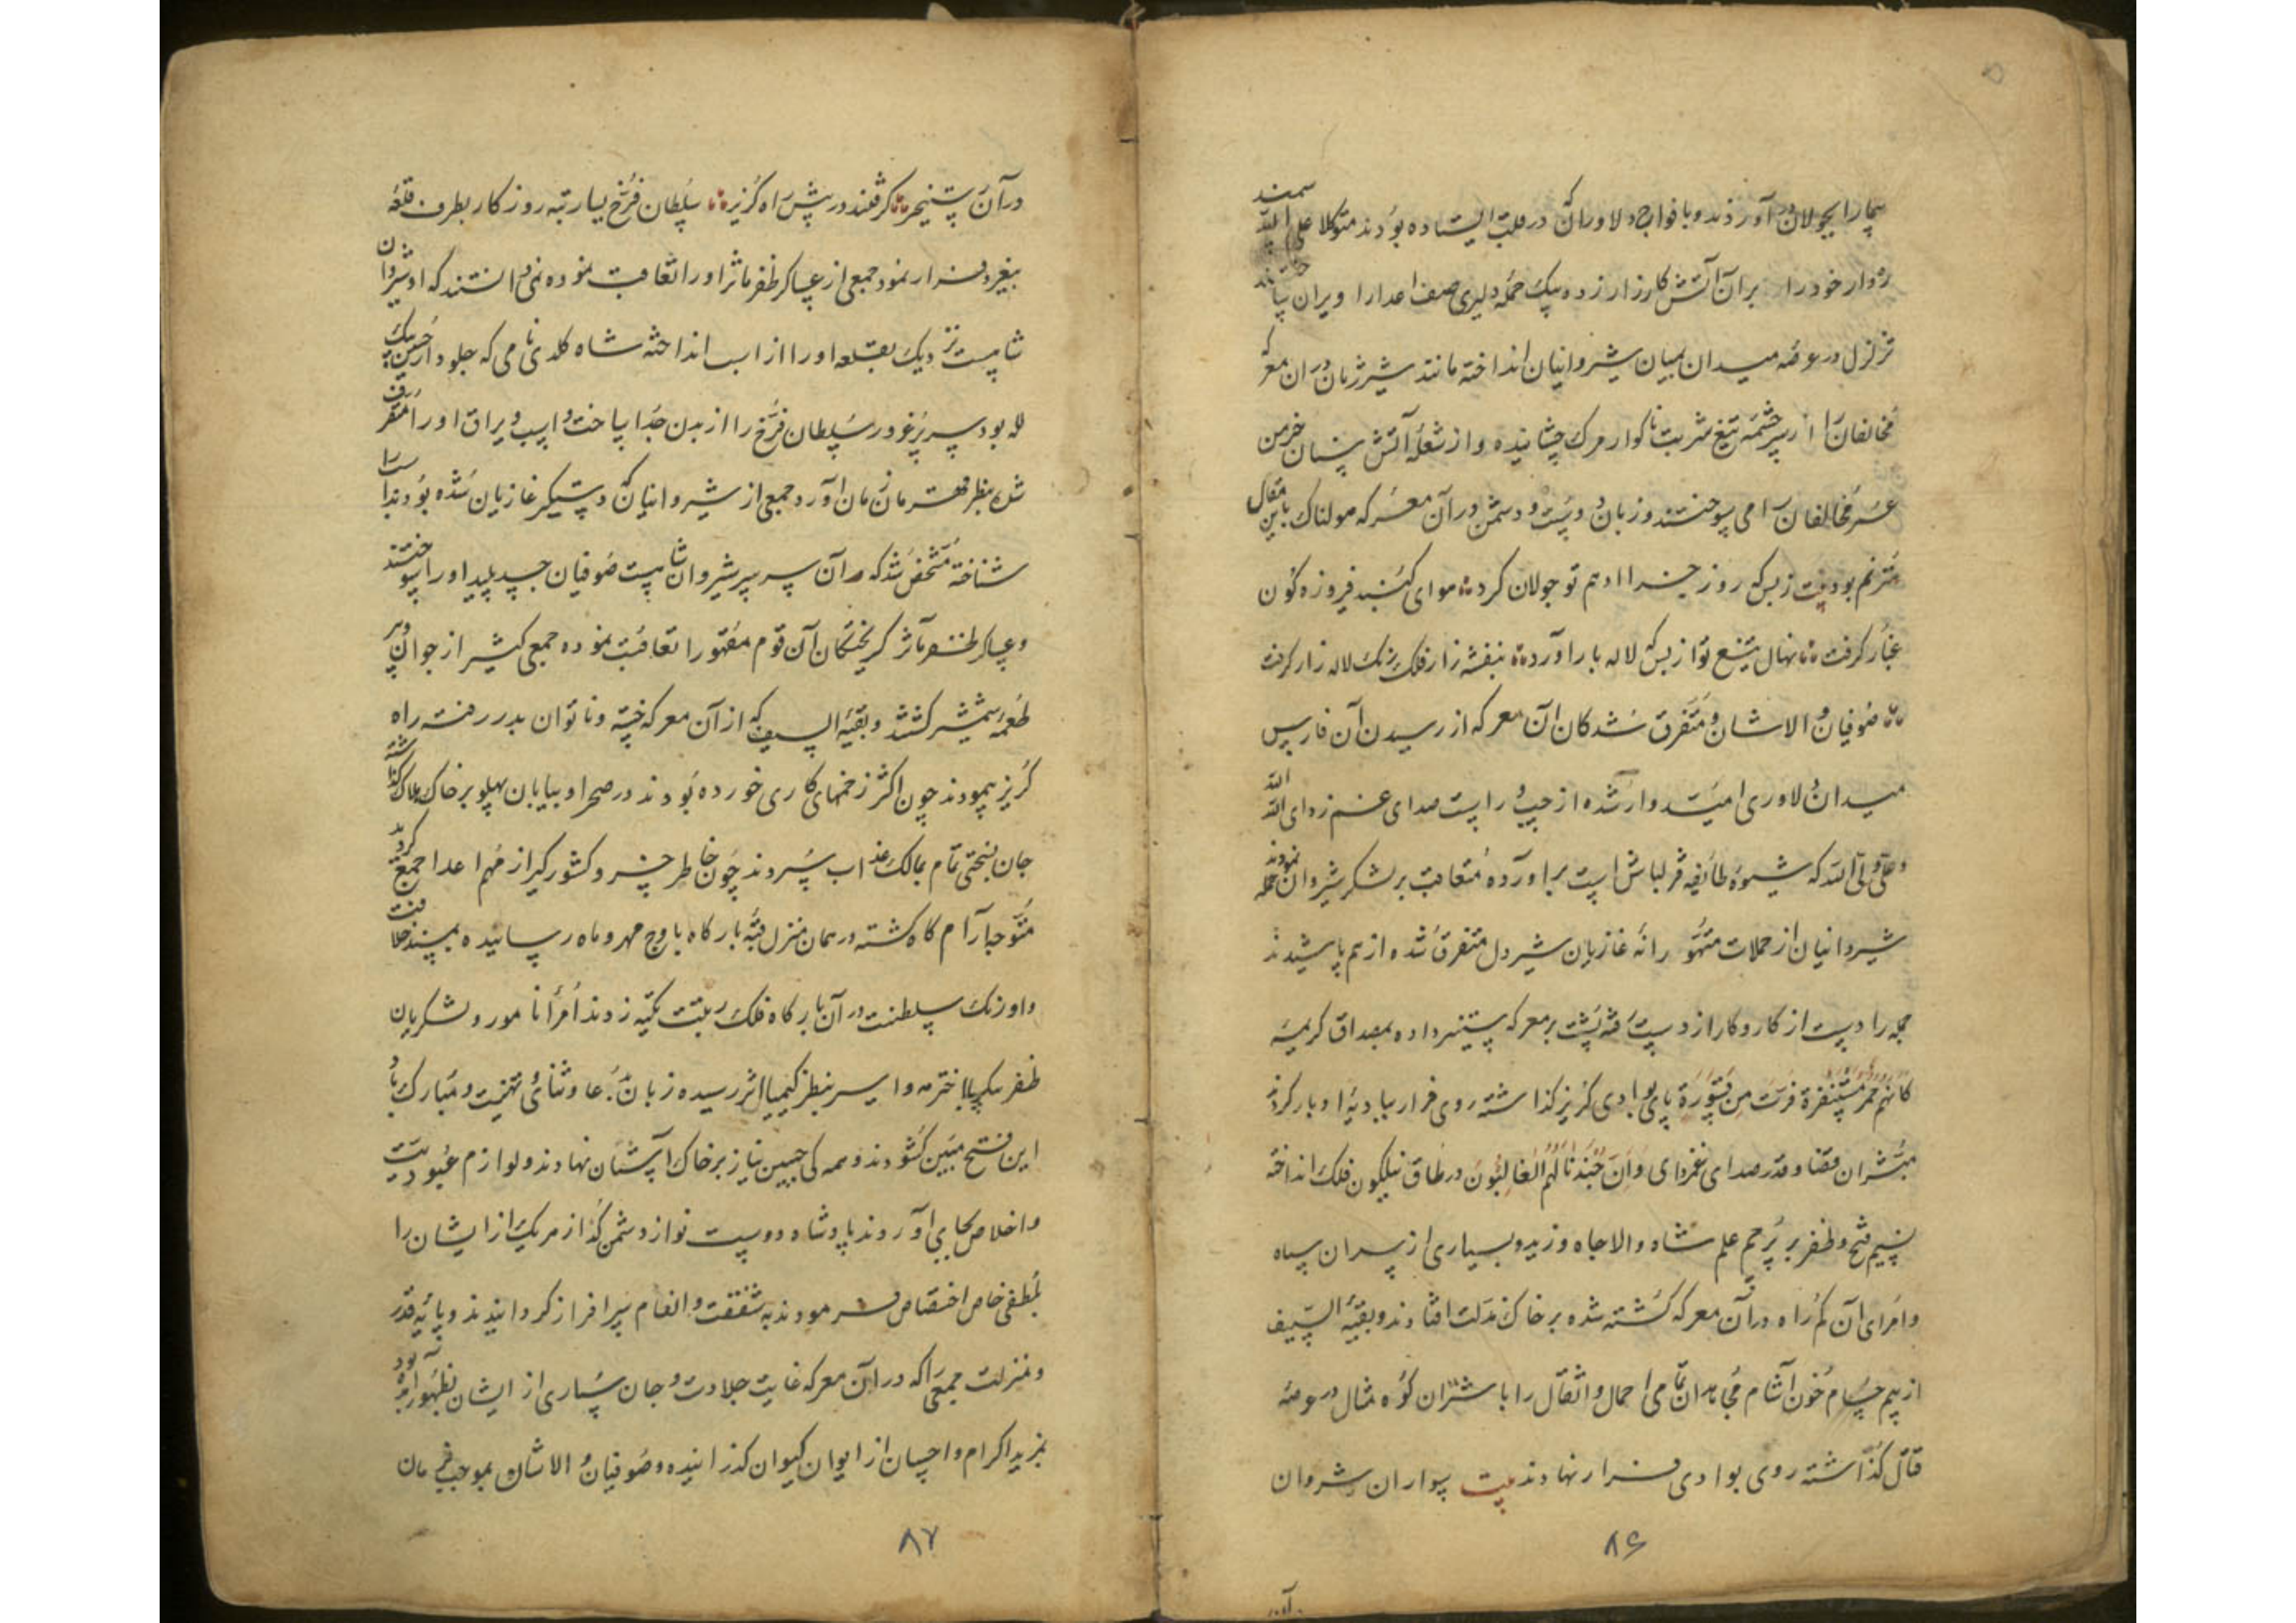 بیمارا بجولان در آورذند و با فواج دلاوران که در عقب ایستاده بودند متوکلا علی الله سمند
خود را بر آن آتش کارزار زد و بیک حمله دلیری صف اعدارا ویران ساختند
تزلزل در عرصه میدان میان شیروانیان انداخته مانند شیر ژیان در ان معرکه
مخالفان را از سرچشمه تیغ شربت ناکوار مرک چشانیده و از شعله آتش سنان خرمن
عمر مخالفان را می سوختند و زبان دوست و دشمن در آن معرکه هولناک باین مقال
مترنم بود بیت ز بس که روز جزا ادهم تو جولان کرد هوای کنبد فیروزه کون
غبار کرفت نهال تیغ تو از بس که لاله بار آورد بنفشه زار فلک رنک لاله زار کرفت
صوفیان والاشان و متفرق شدکان آن معرکه از رسیدن آن فارس
میدان دلاوری امیدوار شده از چپ و راست صدای غم زدای الله الله
و علی ولی الله که شیوه طائفه قزلباش است براورده متعاقب بر لشکر شیروان حمله نمودند
شیروانیان از حملات متهورانه غازیان شیردل متفرق شده از هم پاشیدند
همه را دست از کار و کار از دست رفته پشت بر معرکه ستیز داده بمصداق کریمه
کانهم حمر مستنفرة فرت من قسورة پای بوادی کریز کذاشته روی فرار ببادیه ادبار کردند
مبشران قضا و قدر صدای غمزدای وان جندنا لهم الغالبون در طاق نیلکون فلک انداخته
نسیم فتح و ظفر بر پرچم علم شاه والاجاه وزید و بسیاری از سران سپاه
و امرای آن کم راه در آن معرکه کشته شده بر خاک مذلت افتادند و بقیه السیف
از بیم حسام خون آشام مجاهدان تمامی احمال و اثقال را با شتران کوه مثال در عرصه
قتال کذاشته روی بوادی فرار نهادند بیت سواران شروان
۸۶
در آن رستخیز کرفتند در پیش راه کریز سلطان فرخ یسار تبه روزکار بطرف قلعه
بیغرد فرار نمود جمعی از عساکر ظفر ماثر او را تعاقب نموده نمی دانستند که او شیروان
شاهست نزدیک بقلعه او را از اسب انداخته شاه کلدی نامی که جلودار حسین بیک
لله بود سر پرغرور سلطان فرخ را از بدن جدا ساخت و اسب و یراق او را متصرف
شده بنظر قهرمان زمان آورد جمعی از شیروانیان که دستکیر غازیان شده بودند سر را
شناخته مشخص شد که آن سر سر شیروان شاهست صوفیان جسد پلید او را سوختند
و عساکر ظفر مآثر کریختکان آن قوم مقهور را تعاقب نموده جمعی کثیر از جوان و پیر
طعمه شمشیر کشتند و بقیه السیف که از آن معرکه خسته و ناتوان بدر رفته راه
کریز پیمودند چون اکثر زخمهای کاری خورده بودند در صحرا و بیابان پهلو بر خاک هلاک کذاشته
جان بسختی تمام بمالک عذاب سپردند چون خاطر خسرو کشورکیر از مهم اعدا جمع کردید
متوجه آرام کاه کشته در همان منزل قبه بارکاه باوج مهر و ماه رسانیده بمسند خلافت
و اورنک سلطنت در آن بارکاه فلک رتبت تکیه زدند امراء نامور و لشکریان
ظفر پیکر بااختر مه و اسیر بنظر کیمیا اثر رسیده زبان بدعا و ثنای و تهنیت و مبارک باد
این فتح مبین کشودند و همه کی جبین نیاز بر خاک آستان نهادند و لوازم عبودیت
و اخلاص بجای آوردند پادشاه دوست نواز دشمن کذاز هر یک از ایشان را
بلطفی خاص اختصاص فرمودند به شفقت و انعام سرافراز کردانیدند و پایه قدر
و منزلت جمعی را که در آن معرکه غایت جلادت و جان سپاری از ایشان بظهور آمده بود
بمزید اکرام و احسان از ایوان کیوان کذرانیده و صوفیان والاشان بموجب فرمان
۸۷